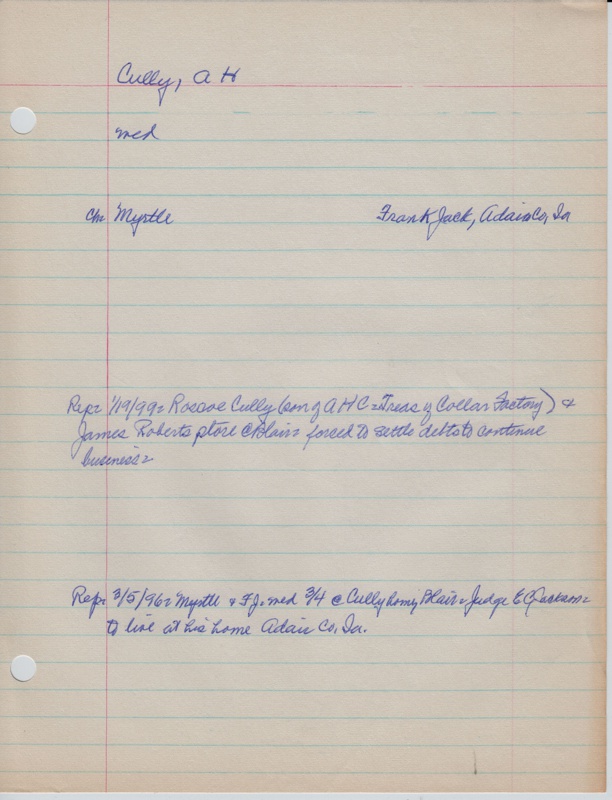 Cully, A H
med
c/m Myrtle Frank Jack, Adair Co, Ia
Rep= 1/19/99= Roscoe Cully (son of A H C = Treas of Collar Factory) &
James Roberts store @ Blair= forced to settle debts to continue
business=
Rep= 3/5/96= Myrtle & FJ= med 3/4 @ Cully home, Blair= Judge E C Jackson=
to live at his home Adair Co, Ia.